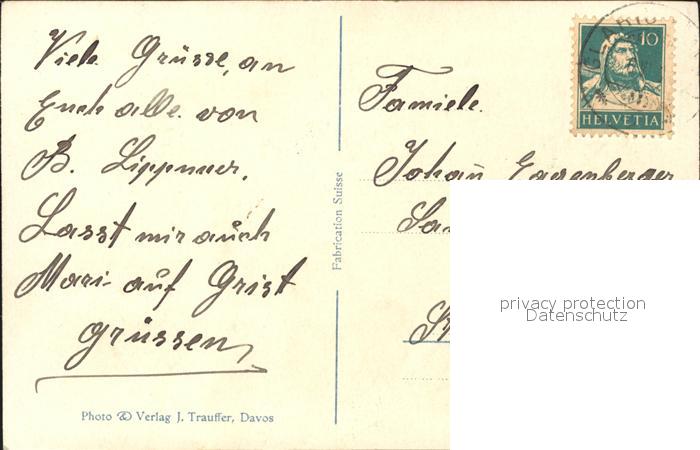 Viele Grüsse, an
Euch alle von
B. Lippuner.
Lasst mir auch
Mari auf Grist
grüssen
Photo & Verlag J. Trauffer, Davos
Fabrication Suisse
10
HELVETIA
Famiele.
Johañ Eggenberger
privacy protection
Datenschutz